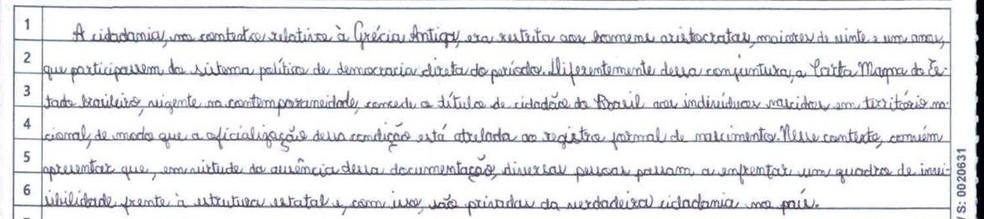 1 A cidadania, no contexto relativo à Grécia Antiga, era restrita aos homens aristocratas, maiores de vinte e um anos,
2 que participassem do sistema político de democracia direta do período. Diferentemente dessa conjuntura, a Carta Magna do Es-
3 tado brasileiro, vigente na contemporaneidade, concede o título de cidadão do Brasil aos indivíduos nascidos em território na-
4 cional, de modo que a oficialização dessa condição está atrelada ao registro formal de nascimento. Nesse contexto, convém
5 apresentar que, em virtude da ausência dessa documentação, diversas pessoas passam a enfrentar um quadro de invi-
6 sibilidade frente à estrutura estatal e, com isso, são privadas da verdadeira cidadania no país.
/ S: 0020631